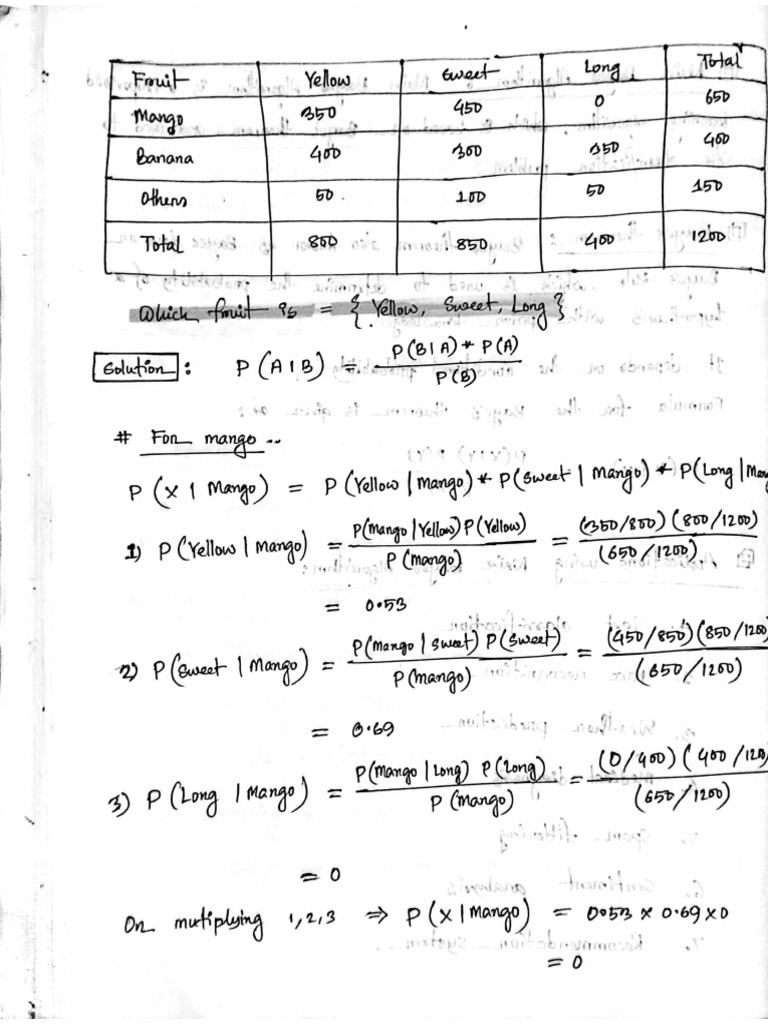 Fruit Yellow Sweet Long Total
Mango 350 450 0 650
Banana 400 300 350 400
Others 50 100 50 150
Total 800 850 400 1200
Which fruit is = { Yellow, Sweet, Long }
Solution : P(A|B) = P(B|A) * P(A) / P(B)
# For mango ..
P(X | Mango) = P(Yellow | Mango) * P(Sweet | Mango) * P(Long | Man
1) P(Yellow | Mango) = P(Mango | Yellow) P(Yellow) / P(mango) = (350/800) (800/1200) / (650/1200)
= 0.53
2) P(Sweet | Mango) = P(Mango | Sweet) P(Sweet) / P(mango) = (450/850) (850/1200 / (650/1200)
= 0.69
3) P(Long | Mango) = P(Mango | Long) P(Long) / P(mango) = (0/400) (400/120 / (650/1200)
= 0
On mutiplying 1,2,3 ⇒ P(X | Mango) = 0.53 x 0.69 x 0
= 0